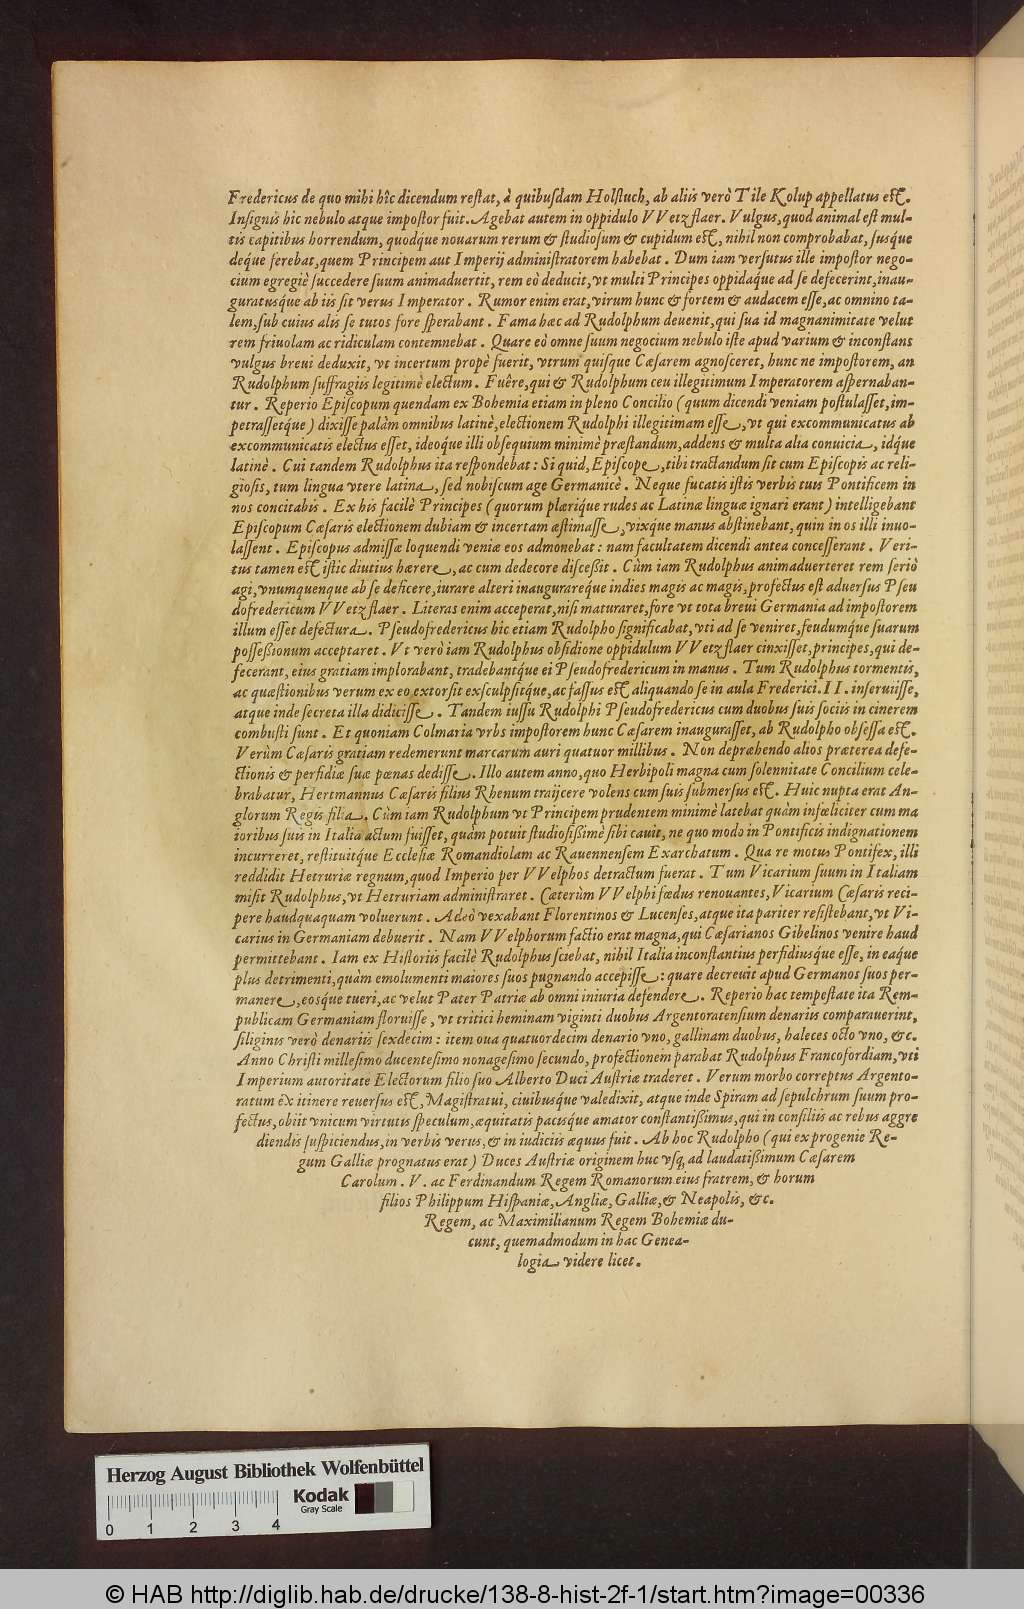 Fredericus de quo mihi hîc dicendum restat, à quibusdam Holstuch, ab aliis verò Tile Kolup appellatus est.
Insignis hic nebulo atque impostor fuit. Agebat autem in oppidulo VVetzflaer. Vulgus, quod animal est mul-
tis capitibus horrendum, quodque nouarum rerum & studiosum & cupidum est, nihil non comprobabat, susque
deque ferebat, quem Principem aut Imperij administratorem habebat. Dum iam versutus ille impostor nego-
cium egregiè succedere suum animaduertit, rem eò deducit, vt multi Principes oppidaque ad se defecerint, inau-
guratusque ab iis sit verus Imperator. Rumor enim erat, virum hunc & fortem & audacem esse, ac omnino ta-
lem, sub cuius alis se tutos fore sperabant. Fama hæc ad Rudolphum deuenit, qui sua id magnanimitate velut
rem friuolam ac ridiculam contemnebat. Quare eò omne suum negocium nebulo iste apud varium & inconstans
vulgus breui deduxit, vt incertum propè fuerit, vtrum quisque Cæsarem agnosceret, hunc ne impostorem, an
Rudolphum suffragiis legitimè electum. Fuêre, qui & Rudolphum ceu illegitimum Imperatorem aspernaban-
tur. Reperio Episcopum quendam ex Bohemia etiam in pleno Concilio (quum dicendi veniam postulasset, im-
petrassetque) dixisse palàm omnibus latinè, electionem Rudolphi illegitimam esse, vt qui excommunicatus ab
excommunicatis electus esset, ideoque illi obsequium minimè præstandum, addens & multa alia conuicia, idque
latinè. Cui tandem Rudolphus ita respondebat: Si quid, Episcope, tibi tractandum sit cum Episcopis ac reli-
giosis, tum lingua vtere latina, sed nobiscum age Germanicè. Neque fucatis istis verbis tuis Pontificem in
nos concitabis. Ex his facilè Principes (quorum plærique rudes ac Latinæ linguæ ignari erant) intelligebant
Episcopum Cæsaris electionem dubiam & incertam æstimasse, vixque manus abstinebant, quin in os illi inuo-
lassent. Episcopus admissæ loquendi veniæ eos admonebat: nam facultatem dicendi antea concesserant. Veri-
tus tamen est istic diutius hærere, ac cum dedecore discessit. Cùm iam Rudolphus animaduerteret rem seriò
agi, vnumquenque ab se deficere, iurare alteri inaugurareque indies magis ac magis, profectus est aduersus Pseu
dofredericum VVetzflaer. Literas enim acceperat, nisi maturaret, fore vt tota breui Germania ad impostorem
illum esset defectura. Pseudofredericus hic etiam Rudolpho significabat, vti ad se veniret, feudumque suarum
possessionum acceptaret. Vt verò iam Rudolphus obsidione oppidulum VVetzflaer cinxisset, principes, qui de-
fecerant, eius gratiam implorabant, tradebantque ei Pseudofredericum in manus. Tum Rudolphus tormentis,
ac quæstionibus verum ex eo extorsit exsculpsitque, ac fassus est aliquando se in aula Frederici. II. inseruiisse,
atque inde secreta illa didicisse. Tandem iussu Rudolphi Pseudofredericus cum duobus suis sociis in cinerem
combusti sunt. Et quoniam Colmaria vrbs impostorem hunc Cæsarem inaugurasset, ab Rudolpho obsessa est.
Verùm Cæsaris gratiam redemerunt marcarum auri quatuor millibus. Non depræhendo alios præterea defe-
ctionis & perfidiæ suæ pœnas dedisse. Illo autem anno, quo Herbipoli magna cum solennitate Concilium cele-
brabatur, Hertmannus Cæsaris filius Rhenum traijcere volens cum suis submersus est. Huic nupta erat An-
glorum Regis filia. Cùm iam Rudolphum vt Principem prudentem minimè latebat quàm infœliciter cum ma
ioribus suis in Italia actum fuisset, quàm potuit studiosissimè sibi cauit, ne quo modo in Pontificis indignationem
incurreret, restituitque Ecclesiæ Romandiolam ac Rauennensem Exarchatum. Qua re motus Pontifex, illi
reddidit Hetruriæ regnum, quod Imperio per VVelphos detractum fuerat. Tum Vicarium suum in Italiam
misit Rudolphus, vt Hetruriam administraret. Cæterùm VVelphi fœdus renouantes, Vicarium Cæsaris reci-
pere haudquaquam voluerunt. Adeò vexabant Florentinos & Lucenses, atque ita pariter resistebant, vt Vi-
carius in Germaniam debuerit. Nam VVelphorum factio erat magna, qui Cæsarianos Gibelinos venire haud
permittebant. Iam ex Historiis facilè Rudolphus sciebat, nihil Italia inconstantius perfidiusque esse, in eaque
plus detrimenti, quàm emolumenti maiores suos pugnando accepisse: quare decreuit apud Germanos suos per-
manere, eosque tueri, ac velut Pater Patriæ ab omni iniuria defendere. Reperio hac tempestate ita Rem-
publicam Germaniam floruisse, vt tritici heminam viginti duobus Argentoratensium denariis comparauerint,
siliginis verò denariis sexdecim: item oua quatuordecim denario vno, gallinam duobus, haleces octo vno, &c.
Anno Christi millesimo ducentesimo nonagesimo secundo, profectionem parabat Rudolphus Francofordiam, vti
Imperium autoritate Electorum filio suo Alberto Duci Austriæ traderet. Verum morbo correptus Argento-
ratum ex itinere reuersus est, Magistratui, ciuibusque valedixit, atque inde Spiram ad sepulchrum suum pro-
fectus, obiit vnicum virtutis speculum, æquitatis pacisque amator constantissimus, qui in consiliis ac rebus aggre
diendis suspiciendus, in verbis verus, & in iudiciis æquus fuit. Ab hoc Rudolpho (qui ex progenie Re-
gum Galliæ prognatus erat) Duces Austriæ originem huc vsq, ad laudatissimum Cæsarem
Carolum. V. ac Ferdinandum Regem Romanorum eius fratrem, & horum
filios Philippum Hispaniæ, Angliæ, Galliæ, & Neapolis, &c.
Regem, ac Maximilianum Regem Bohemiæ du-
cunt, quemadmodum in hac Genea-
logia videre licet.
Herzog August Bibliothek Wolfenbüttel
Kodak
Gray Scale
0 1 2 3 4
© HAB http://diglib.hab.de/drucke/138-8-hist-2f-1/start.htm?image=00336